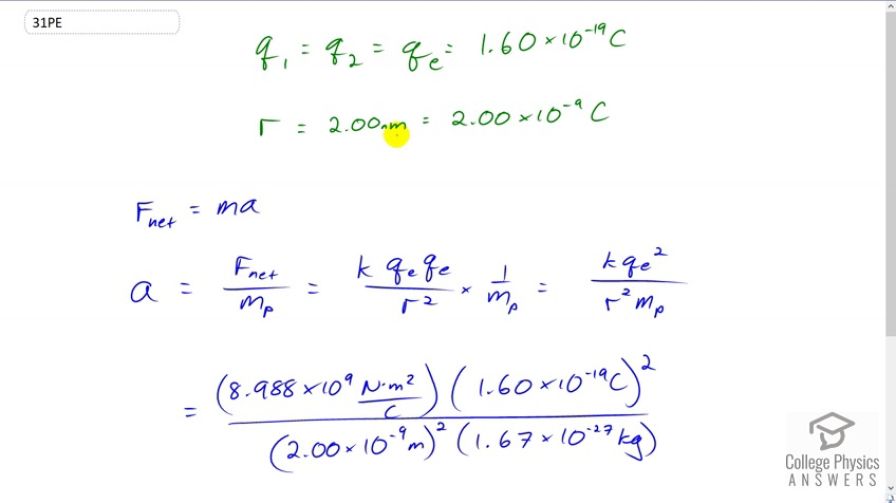 31PE
q₁ = q₂ = qₑ = 1.60 × 10⁻¹⁹ C
r = 2.00nm = 2.00 × 10⁻⁹ C
F_net = ma
a = F_net / m_p = k qₑ qₑ / r² × 1 / m_p = k qₑ² / r² m_p
= (8.988 × 10⁹ N·m² / C) (1.60 × 10⁻¹⁹ C)² / (2.00 × 10⁻⁹ m)² (1.67 × 10⁻²⁷ kg)
College Physics
ANSWERS